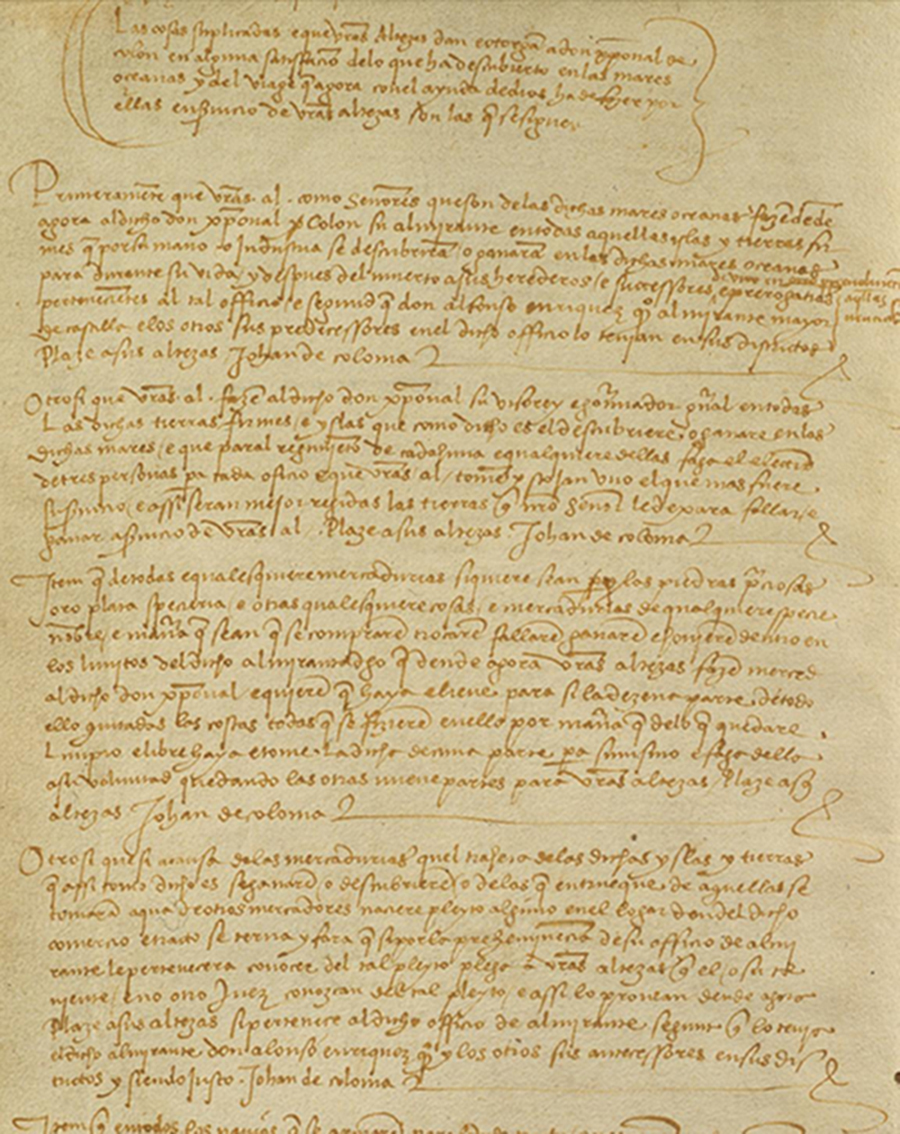 Las cosas suplicadas e que vras altezas dan e otorgã a don xp̃oual de
colon en alguna satisfaciõ delo que ha descubierto en las mares
oceanas y del viage q̃ agora con el ayuda de dios ha de fazer por
ellas en s̃uicio de vras altezas son las q̃ se siguen
Primeramẽte que vras al. como Señores que son delas dichas mares oceanas fazẽ dẽde
agora al dicho don xp̃oual Colon su almirante en todas aquellas islas y tierras fir
mes q̃ por su mano o industria se descubrirã o ganarã en las dichas mares oceanas
para durante su vida y despues del muerto a sus herederos e sucessores
de vno en
perpetualmẽte
e prerogatiuas
aq̃llas
pertenecientes al tal officio e segund q̃ don alfonso enrriquez q̃ almirante mayor
de castilla e los otros sus predecessores en el dicho officio lo tenian en sus districtos
Plaze a sus altezas Johan de coloma
Otrosi que vras al. fazẽ al dicho don xp̃oual su visorey e gouernador gñal en todas
Las dichas tierras firmes e yslas que como dicho es el descubriere o ganare en las
dichas mares e que paral regimiẽto de cadahuna e qualquiere dellas faga el elecciõ
de tres personas pa cada oficio e que vras al. tomẽ y scojan vno el que mas fuere
su s̃uicio e assi seran mejor regidas las tierras q̃ nro Señor le dexara fallar e
ganar a s̃uicio de vras al. Plaze a sus altezas Johan de coloma
Item q̃ de todas e qualesquiere mercadurias siquiere sean perlas piedras p̃ciosas
oro plata specieria e otras qualesquiere cosas e mercadurias de qualquiere specie
nõbre e mañã q̃ sean q̃ se comprarẽ trocarẽ fallarẽ ganarẽ e houierẽ dentro en
los limites del dicho almirantadgo q̃ dende agora vras altezas fazẽ merced
al dicho don xp̃oual e quierẽ q̃ haya e lieue para si la dezena parte de todo
ello quitadas las costas todas q̃ se fizierẽ en ello por mañã q̃ delo q̃ quedare
Limpio e libre haya e tome La dicha decima parte pa si mismo e faga dello
a su voluntad quedando las otras nueue partes para vras altezas Plaze a sus
altezas Johan de coloma
Otrosi que si a causa delas mercadurias quel trahera delas dichas yslas y tierras
q̃ assi como dicho es se ganarẽ o descubrierẽ o delas q̃ en trueque de aquellas se
tomarã aqua de otros mercadores naciere pleyto alguno en el logar dondel dicho
comercio e tracto se terna y fara q̃ si por la preheminencia de su officio de almi
rante le pertenecera conocer del tal pleyto plega a vras altezas q̃ el o su te
niente e no otro Juez conozcan del tal pleyto e assi lo prouean dende agora
Plaze a sus altezas si pertenece al dicho officio de almirante segunt q̃ lo tenia
el dicho almirante don alonso enrriquez q̃ y los otros sus antecessores en sus dis
trictos y siendo justo. Johan de coloma
Item q̃ en todos los nauios q̃ se